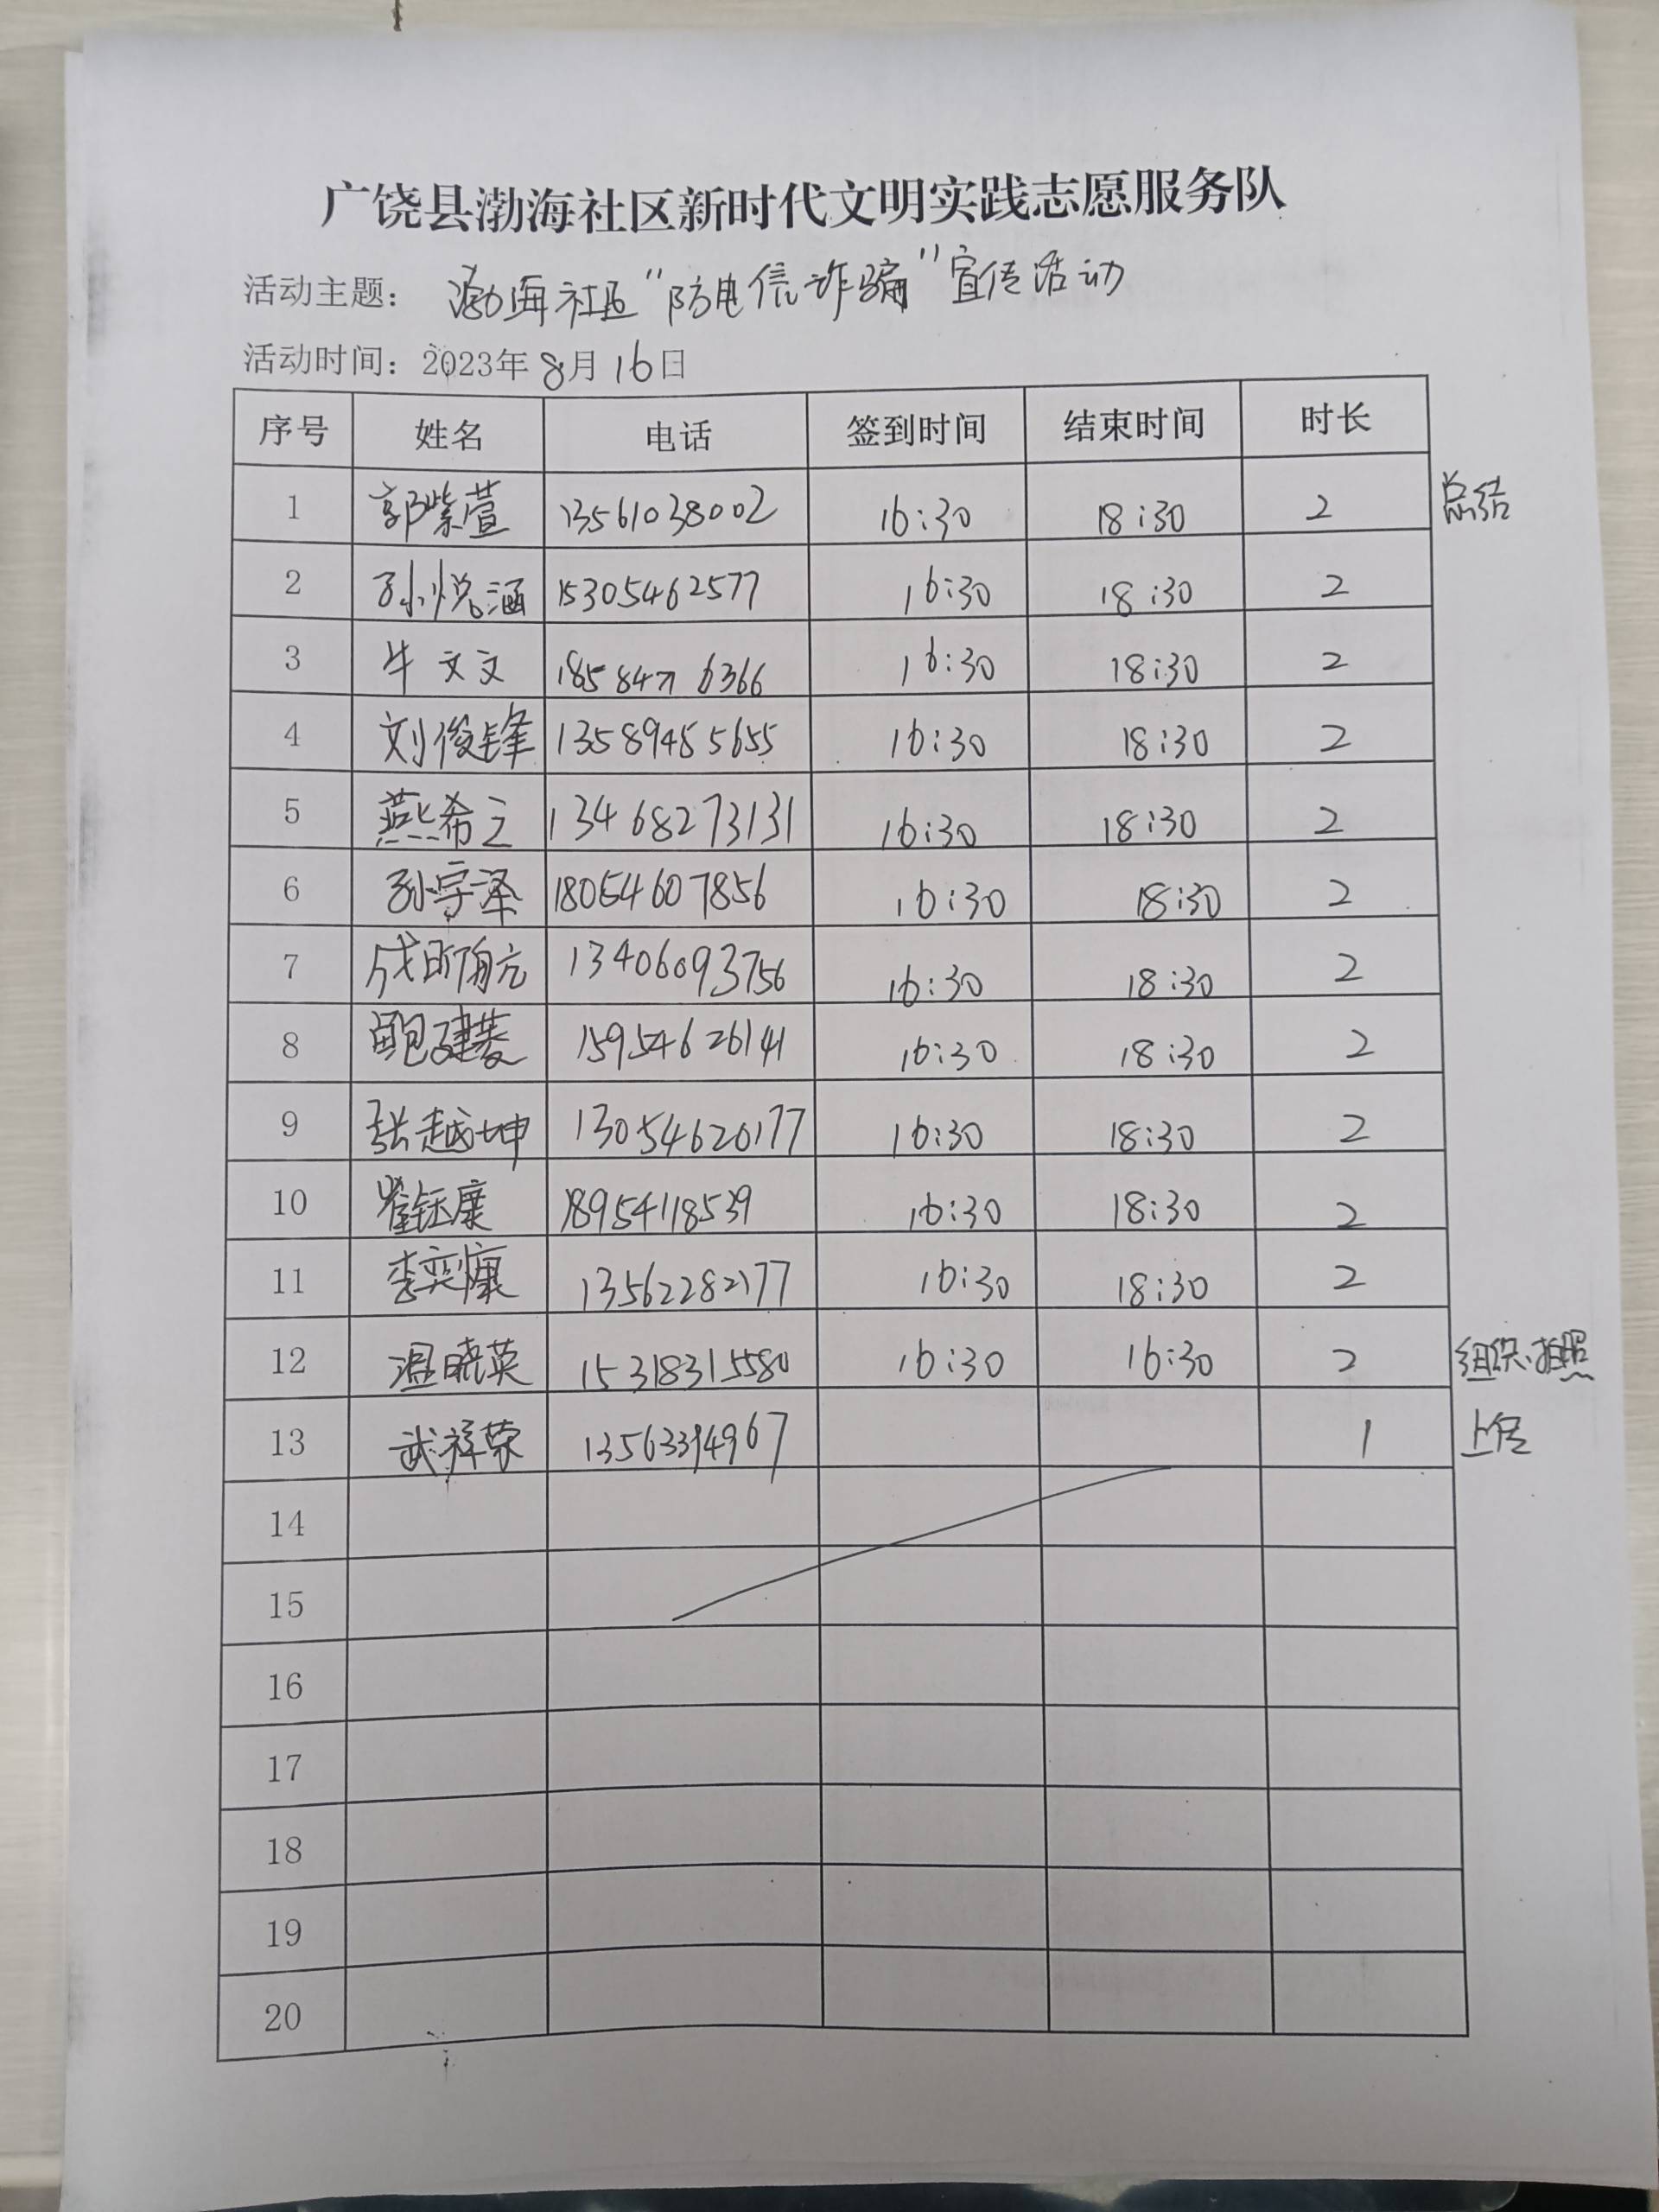 广饶县渤海社区新时代文明实践志愿服务队
活动主题： 渤海社区"防电信诈骗"宣传活动
活动时间：2023年8月16日
序号 姓名 电话 签到时间 结束时间 时长
1 郭紫萱 13561038002 16:30 18:30 2 总结
2 孙悦涵 15305462577 16:30 18:30 2
3 牛文文 18584776366 16:30 18:30 2
4 刘俊锋 13589455655 16:30 18:30 2
5 燕希之 13468273131 16:30 18:30 2
6 孙宇泽 18054607856 16:30 18:30 2
7 13406093756 16:30 18:30 2
8 鲍建菱 15954626141 16:30 18:30 2
9 张越坤 13054620177 16:30 18:30 2
10 崔钰康 18954118539 16:30 18:30 2
11 李奕慷 13562282177 16:30 18:30 2
12 温晓英 15318315580 16:30 16:30 2 组织、拍照
13 武祥荣 13563394967 1 上传
14
15
16
17
18
19
20